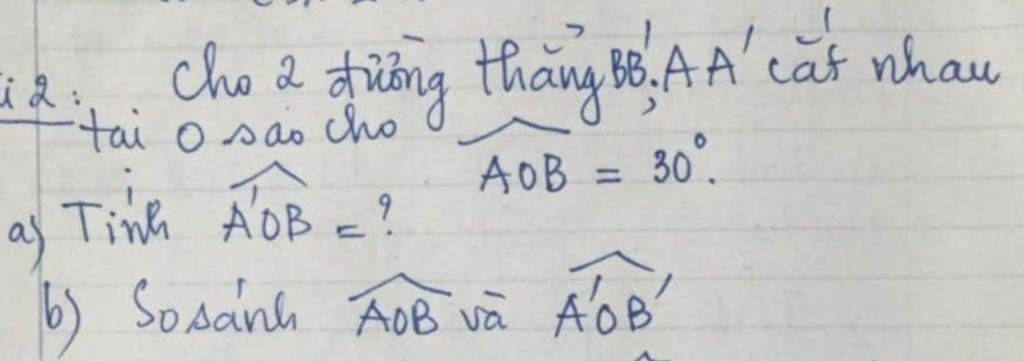 i 2: Cho 2 đường thẳng BB'; AA' cắt nhau
tại O sao cho
AOB = 30°.
a) Tính A'OB = ?
b) So sánh AOB và A'OB'